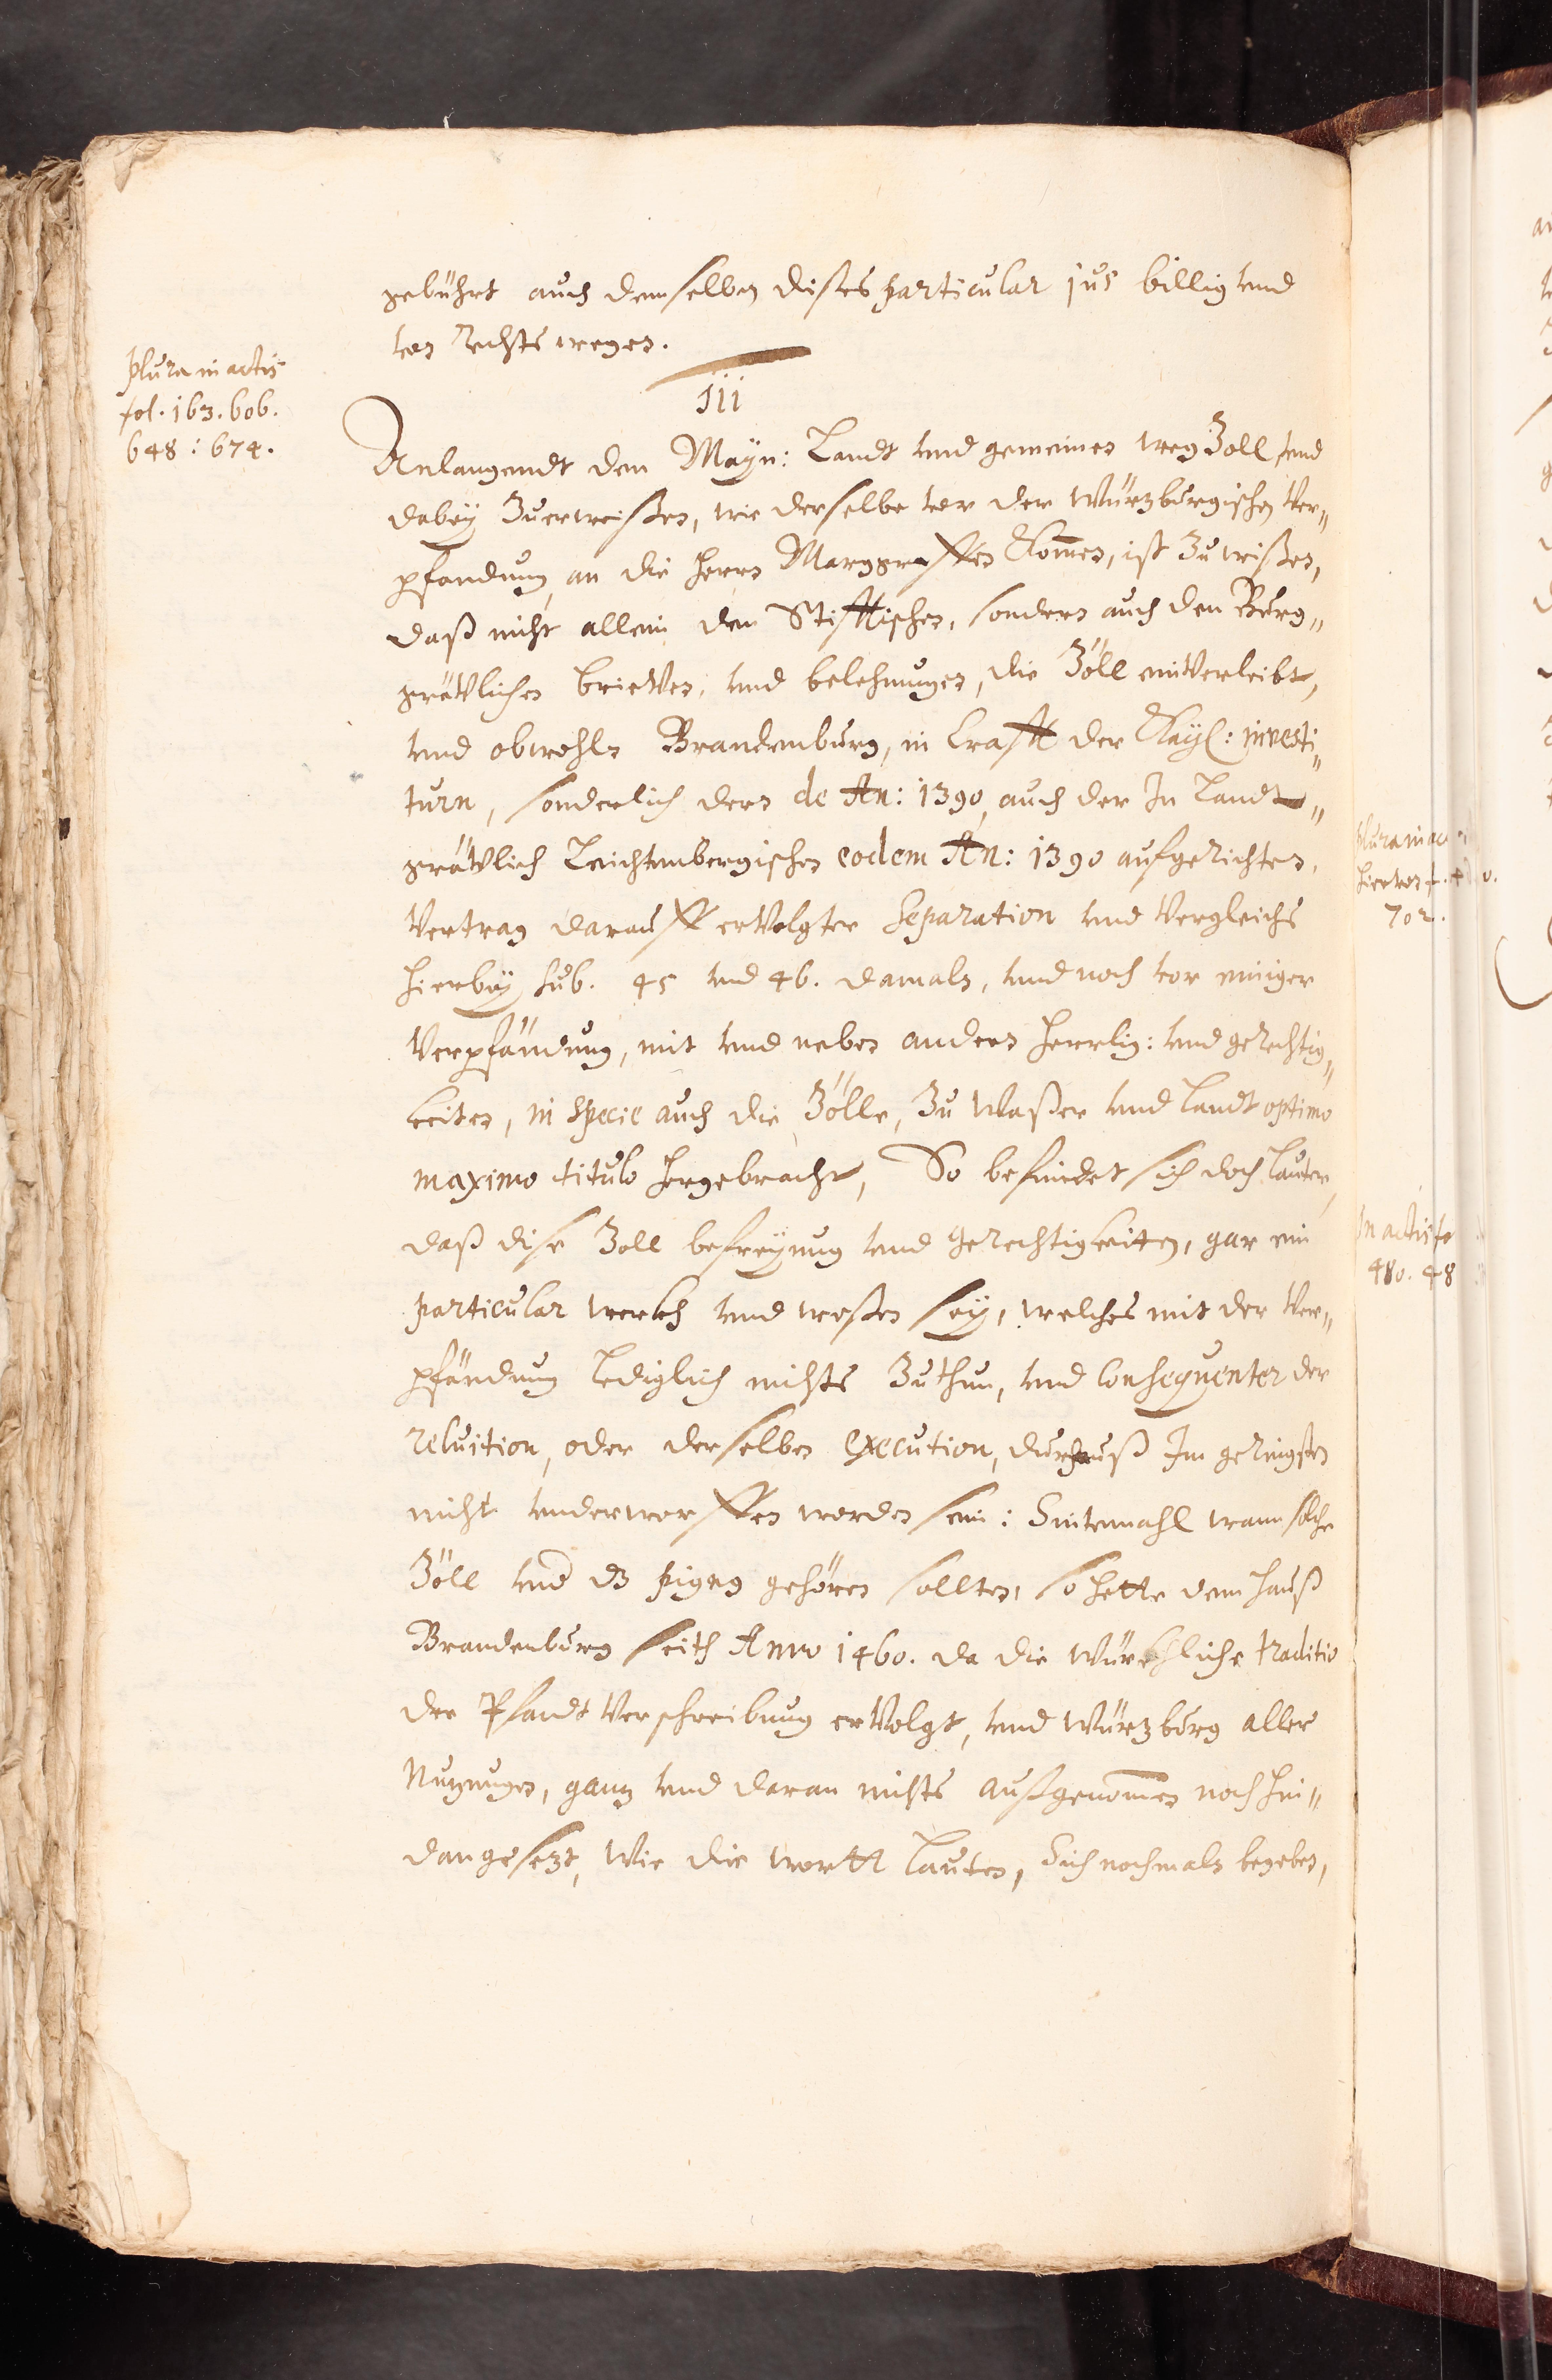 gebührt auch demselben dises particular jus billig und
von Rechts wegen.
plura in actis
fol. 163. 606.
648: 674.
iii
Anlangendt den Mayn: Landt und gemeinen weg Zoll, und
dabey Zuerweisen, wie derselbe vor der Würtzburgischen Ver„
pfandung, an die Herrn Marggraffen Kom̄en, ist Zuwißen,
daß nicht allein den Stifftischen, sondern auch den Burg„
grävlichen brieven, und belehnungen, die Zöll einverleibt,
und obwohln Brandenburg, in krafft der Kayl: investi„
turn, sonderlich dern de An: 1390, auch der In Landt„
grävlich Leichtenbergischen eodem An: 1390 aufgerichten,
Vertrag darauff ervolgter Separation und Vergleichs
hierbey sub. 45 und 46. damals, und noch vor einiger
Verpfändung, mit und neben andern Herrlig: und gerechtig„
keiten, in specie auch die Zölle, Zu Waßer und Landt optimo
maximo titulo hergebracht, So befindet sich doch lauter,
daß dise Zoll befreyung und Gerechtigkeitten, gar ein
particular werckh und wesen sey, welches mit der Ver„
pfändung lediglich nichts Zuthun, und consequenter der
reluition, oder derselben execution, durchauß Im geringsten
nicht underworffen worden sein: Sintemahl wann solche
Zöll und dz pigus gehören sollten, so hette dem Hauß
Brandenburg seith Anno 1460. da die Würckhliche traditio
der Pfandt Verschreibung ervolgt, und Würtzburg aller
Nutzungen, gantz und daran nichts außgenom̄en noch hin„
dangesezt, Wie die wortt lauten, Sich nochmals begeben,
plura in ac
702.
In actis fo
480. 48